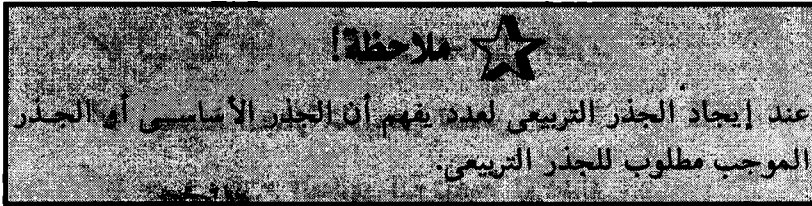 ملاحظة!
عند إيجاد الجذر التربيعى لعدد يفهم أن الجذر الأساسى أو الجذر
الموجب مطلوب للجذر التربيعى.